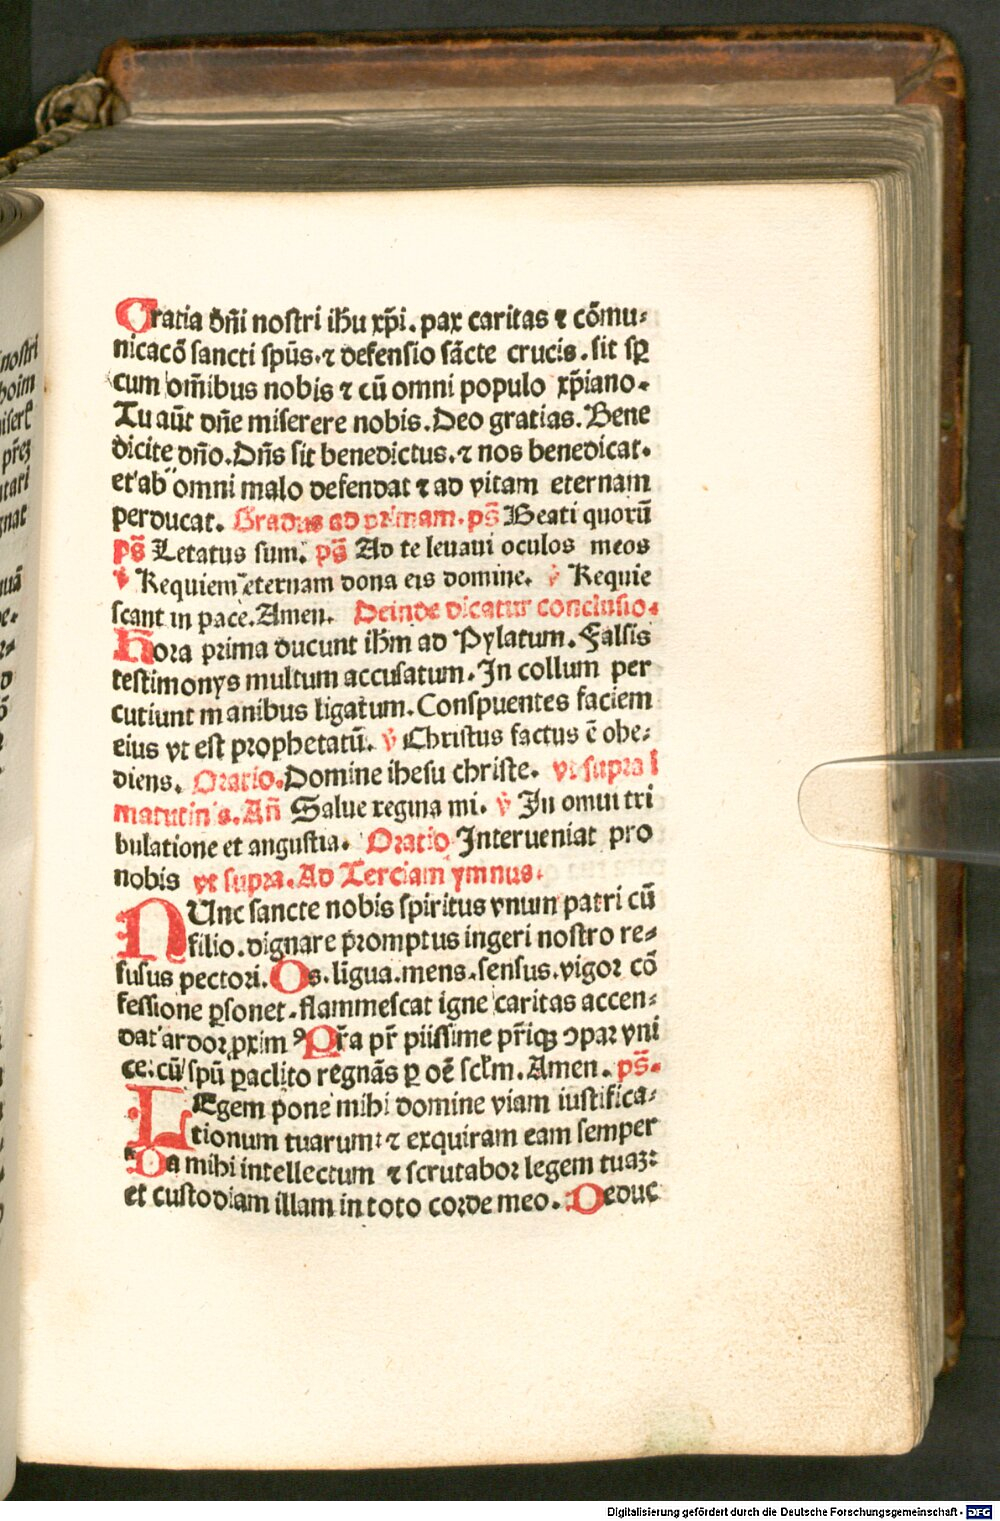 Gratia dñi nostri ihu xp̄i. pax caritas ⁊ cõmu⸗
nicacõ sancti spūs. ⁊ defensio sācte crucis. sit sꝑ
cum om̄ibus nobis ⁊ cū omni populo xp̄iano.
Tu aūt dñe miserere nobis. Deo gratias. Bene
dicite dño. Dñs sit benedictus. ⁊ nos benedicat.
et ab omni malo defendat ⁊ ad vitam eternam
perducat. Gradus ad primam. pš Beati quorū
pš Letatus sum. pš Ad te leuaui oculos meos
Requiem eternam dona eis domine. ℣ Requie
scant in pace. Amen. Deinde dicatur conclusio.
Hora prima ducunt ihm ad Pylatum. Falsis
testimonys multum accusatum. In collum per
cutiunt manibus ligatum. Conspuentes faciem
eius vt est prophetatū. ℣ Christus factus ē obe⸗
diens. Oratio. Domine ihesu christe. vt supra i
matutinis. Añ Salue regina mi. ℣ In omni tri
bulatione et angustia. Oratio Interueniat pro
nobis vt supra. Ad Terciam ymnus.
NUnc sancte nobis spiritus vnum patri cū
filio. dignare promptus ingeri nostro re⸗
fusus pectori. Os. ligua. mens. sensus. vigor cō
fessione ꝑsonet. flammescat igne caritas accen⸗
dat ardor ꝓxim⁹ Pr̄a pr̄ piissime pr̄iqꝫ ↄpar vni
ce: cū spū paclito regnās ꝑ oē sclm. Amen. pš.
LEgem pone mihi domine viam iustifica⸗
tionum tuarum: ⁊ exquiram eam semper
Da mihi intellectum ⁊ scrutabor legem tuaꝫ:
et custodiam illam in toto corde meo. Deduc
nostri
Digitalisierung gefördert durch die Deutsche Forschungsgemeinschaft - DFG